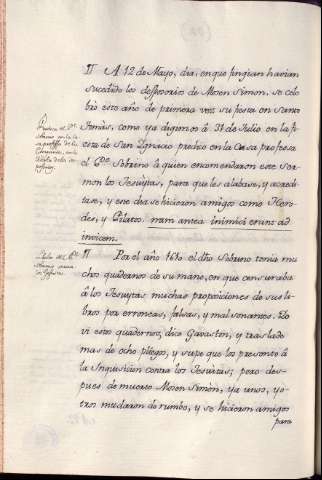 ¶ A 12 de Mayo, dia, en que fingian havian
sucedido los desposorios de Mosen Simon, se cele
bró este año de primera vez su fiesta en Santo
Tomàs, como ya digimos à 31 de Julio en la fi
esta de San Ignacio predicó en la Casa profesa
el Pe. Sobrino à quien encomendaron este Ser
mon los Jesuytas, para que les alabase, y acredi
tase, y ese dia se hicieron amigos como Hero
des, y Pilatos nam antea inimici erant ad
invicem.
¶ Por el año 1610 el dho Sobrino tenia mu
chos quadernos de su mano, en que censuraba
à los Jesuytas muchas proposiciones de sus li
bros por erroneas, falsas, y mal sonantes. Yo
vi estos quadernos, dice Gavastón, y traslade
mas de ocho pliegos, y supe que los presentó à
la Inquisicion contra los Jesuitas; pero des-
pues de muerto Mosen Simòn, ya unos, y o-
tros mudaron de rumbo, y se hicieron amigos
para